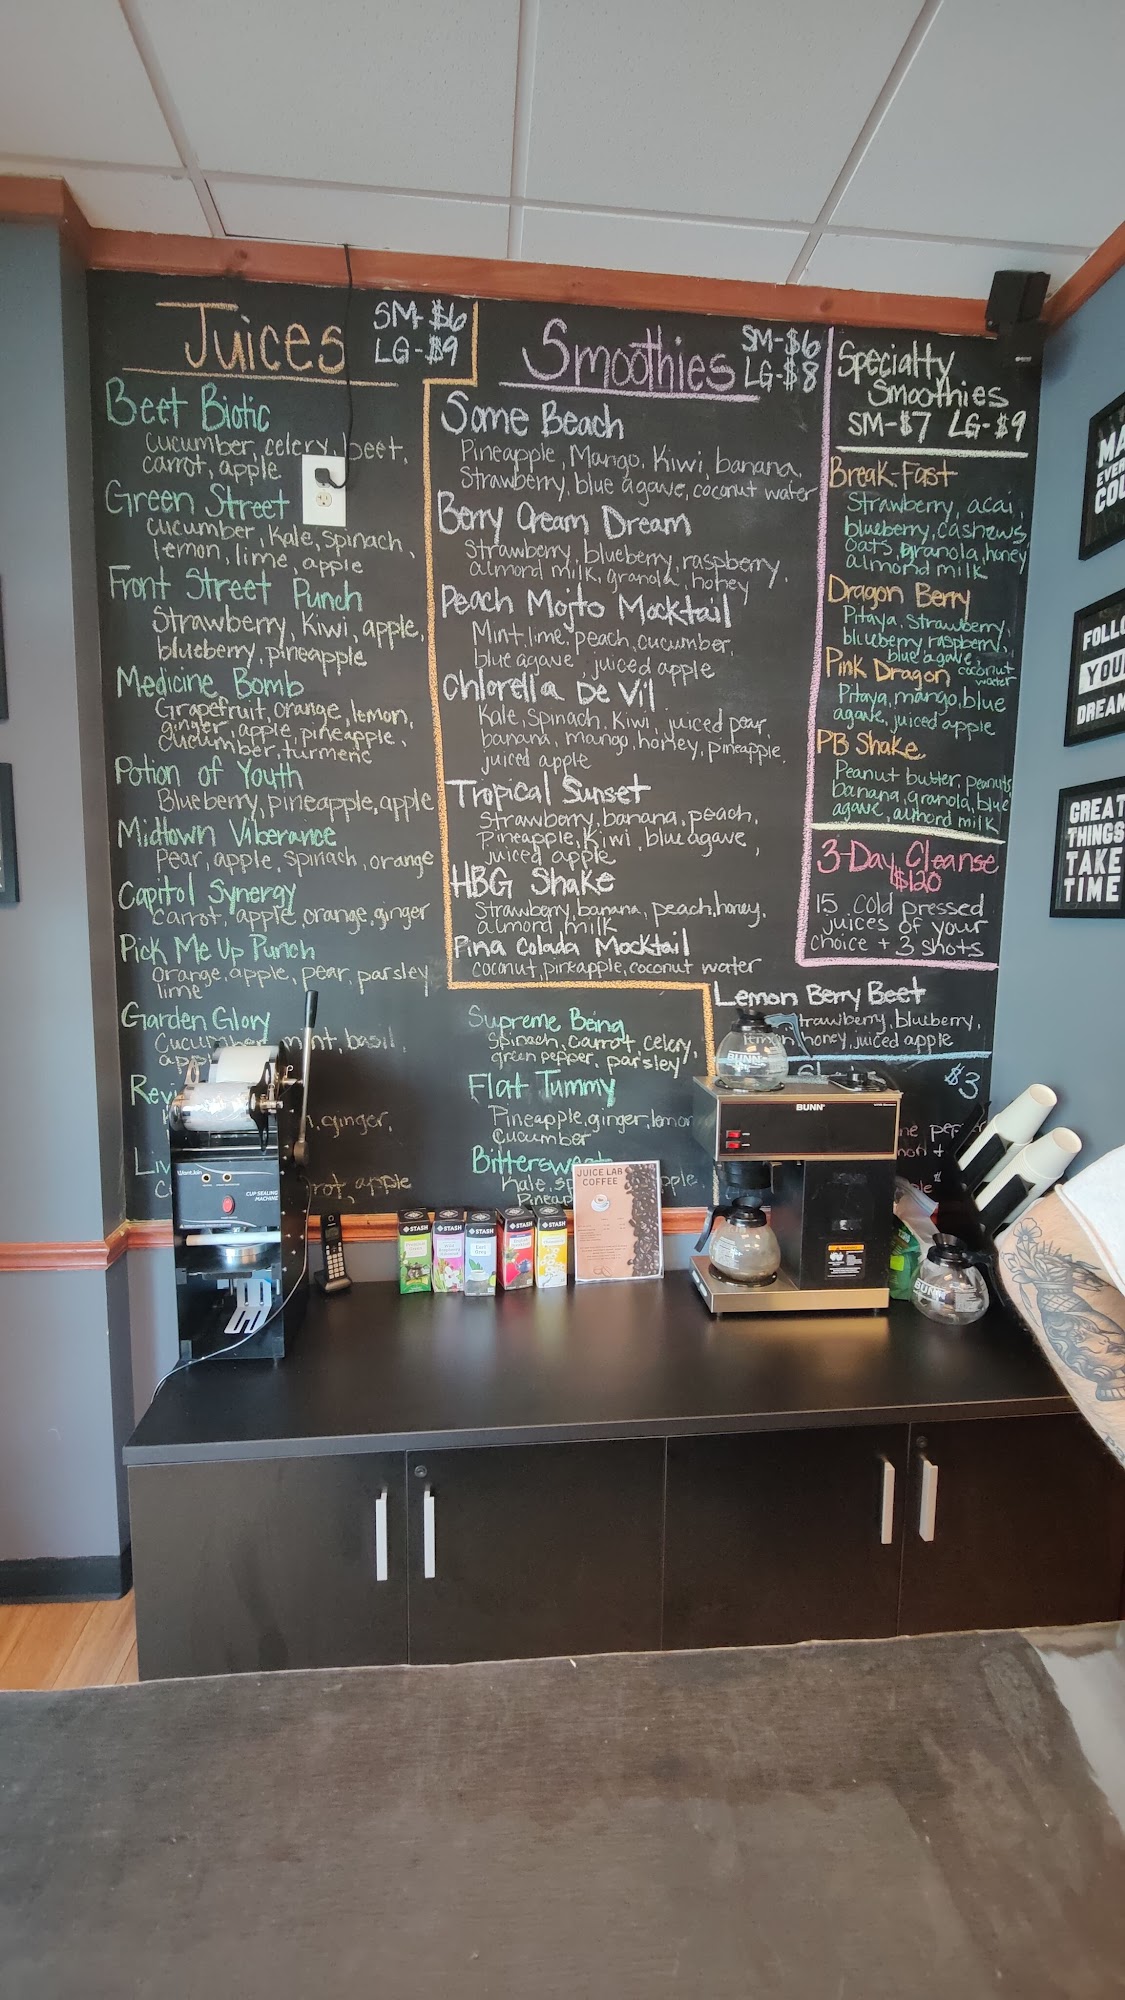 Juices
SM-$6
LG-$9
Beet Biotic
cucumber, celery, beet,
carrot, apple
Green Street
cucumber, Kale, spinach,
lemon, lime, apple
Front Street Punch
Strawberry, Kiwi, apple,
blueberry, pineapple
Medicine Bomb
Grapefruit, orange, lemon,
ginger, apple, pineapple,
cucumber, turmeric
Potion of Youth
Blueberry, pineapple, apple
Midtown Viberance
Pear, apple, spinach, orange
Capitol Synergy
carrot, apple, orange, ginger
Pick Me Up Punch
orange, apple, pear, parsley
lime
Garden Glory
Cucumber, mint, basil,
ginger,
apple
Supreme Being
Spinach, carrot, celery,
green pepper, parsley
Flat Tummy
Pineapple, ginger, lemon
Cucumber
Smoothies
SM-$6
LG-$8
Some Beach
Pineapple, Mango, Kiwi, banana,
Strawberry, blue agave, coconut water
Berry Cream Dream
Strawberry, blueberry, raspberry,
almond milk, granola, honey
Peach Mojto Mocktail
Mint, lime, peach, cucumber,
blue agave, juiced apple
Chlorella De Vil
Kale, Spinach, Kiwi, juiced pear,
banana, mango, honey, pineapple,
juiced apple
Tropical Sunset
Strawberry, banana, peach,
Pineapple, Kiwi, blue agave,
juiced apple
HBG Shake
Strawberry, banana, peach, honey,
almond milk
Pina Colada Mocktail
coconut, pineapple, coconut water
Lemon Berry Beet
blueberry,
honey, juiced apple
Specialty
Smoothies
SM-$7 LG-$9
Break-Fast
Strawberry, acai,
blueberry, cashews,
oats, granola, honey
almond milk
Dragon Berry
Pitaya, strawberry,
blueberry, raspberry,
blue agave, coconut
water
Pink Dragon
Pitaya, mango, blue
agave, juiced apple
PB Shake
Peanut butter, peanuts
banana, granola, blue
agave, almond milk
3-Day Cleanse
$120
15 cold pressed
juices of your
choice + 3 shots
$3
JUICE LAB
COFFEE
BUNN
BUNN
BUNN
CUP SEALING
MACHINE
STASH
STASH
STASH
STASH
STASH
Earl
Grey
FOLLO
YOUR
DREAM
GREAT
THINGS
TAKE
TIME